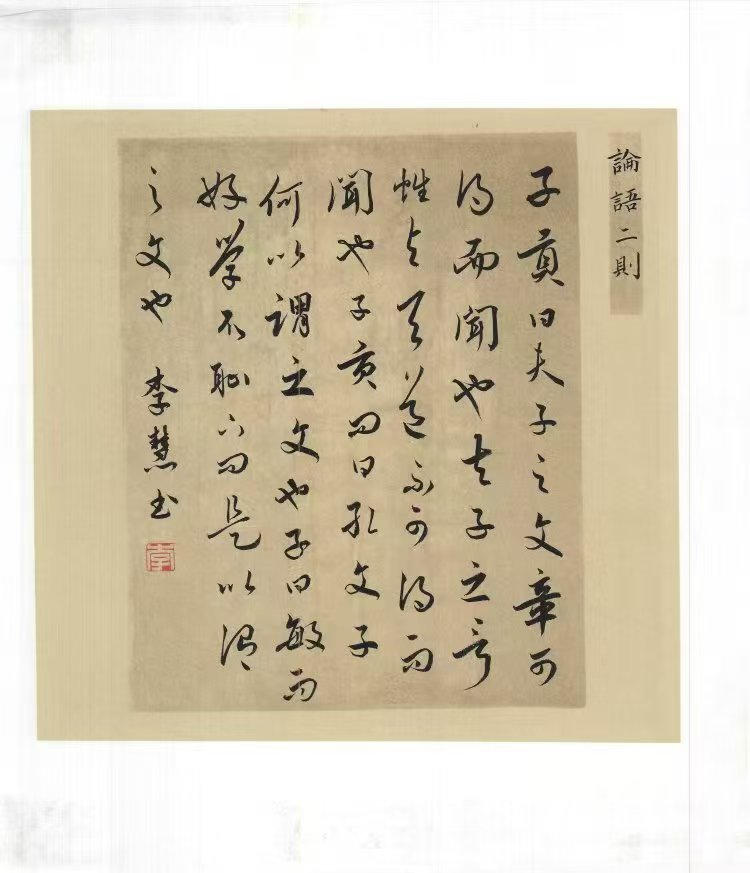 論語二則
子貢曰夫子之文章可
得而聞也夫子之言
性與天道不可得而
聞也子貢問曰孔文子
何以謂之文也子曰敏而
好學不恥下問是以謂
之文也 李慧书
李